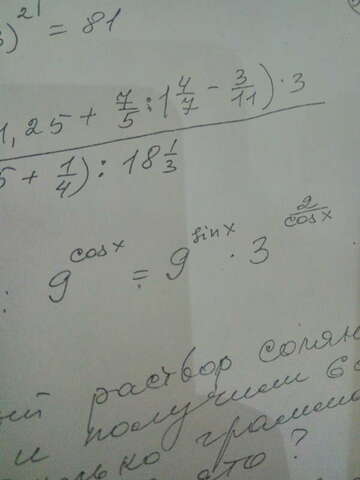 )^2 = 81
1,25 + 7/5 : 1 4/7 - 3/11) · 3
5 + 1/4) : 18 1/3
: 9^cosx = 9^sinx · 3^(2/cosx)
раствор солян
и получили 6
грамм
это?